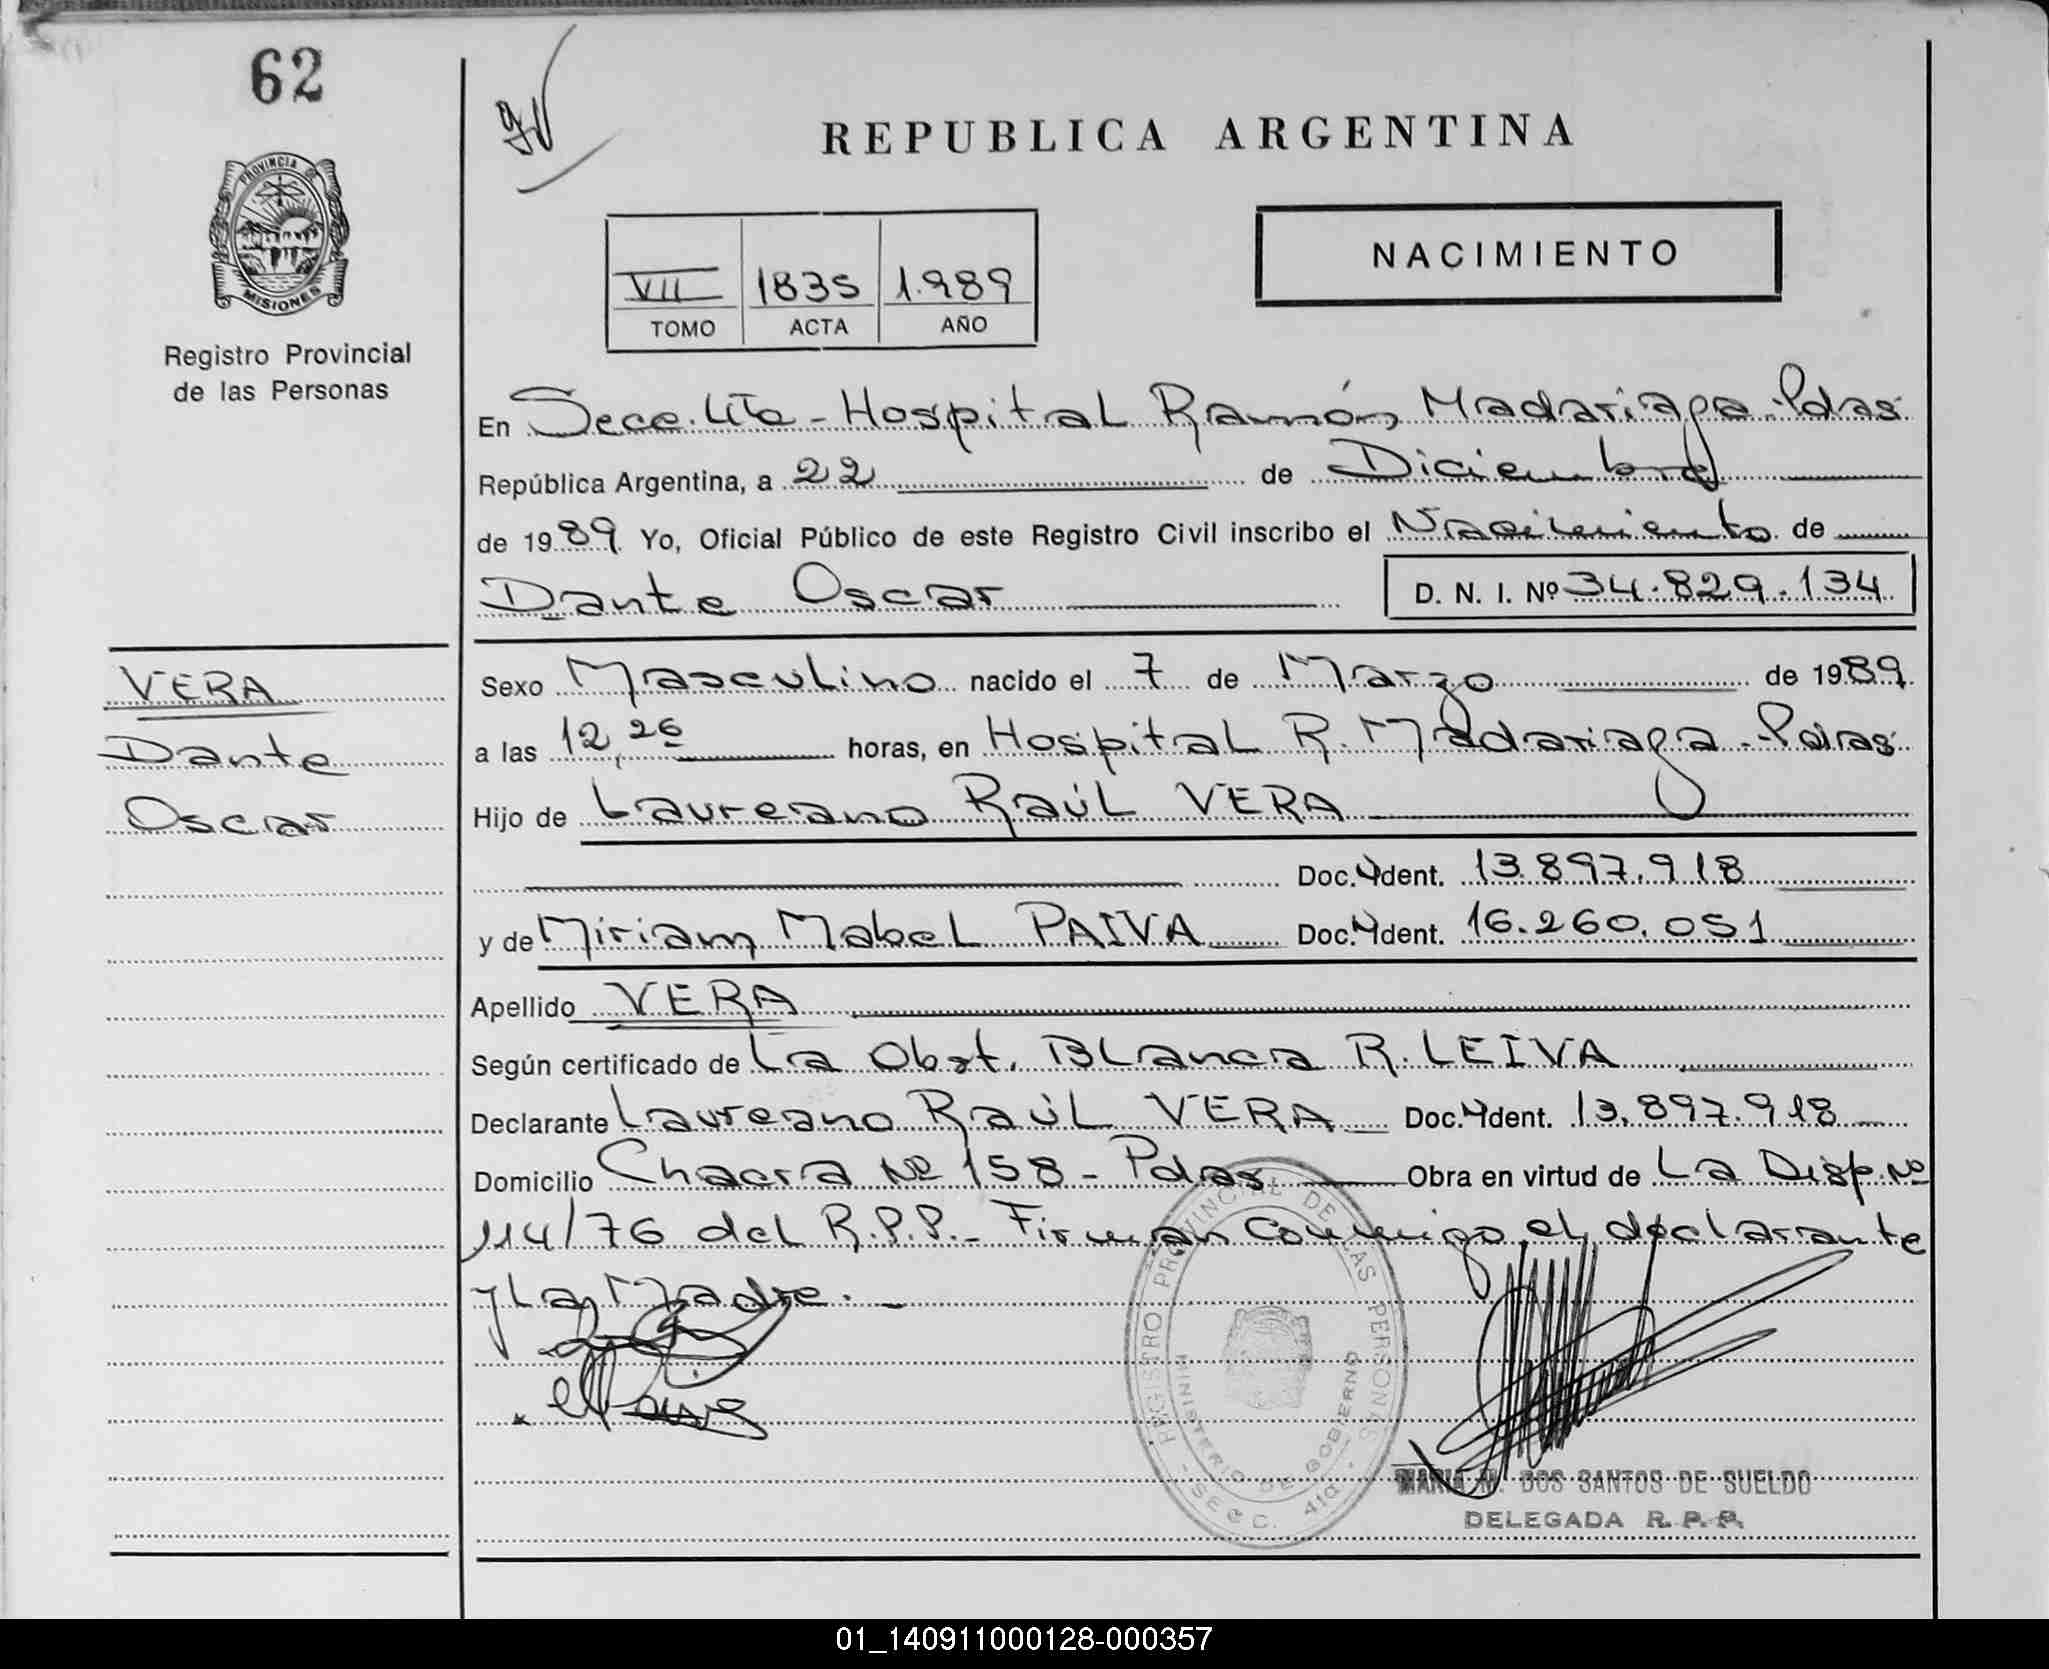 62
PROVINCIA DE
MISIONES
Registro Provincial
de las Personas
REPUBLICA ARGENTINA
NACIMIENTO
VII 1835 1.989
TOMO ACTA AÑO
En Secc. 4ta - Hospital Ramón Madariaga - Pdas
República Argentina, a 22 de Diciembre
de 1989 Yo, Oficial Público de este Registro Civil inscribo el Nacimiento de
Dante Oscar D. N. I. Nº 34.829.134
VERA
Dante
Oscar
Sexo Masculino nacido el 7 de Marzo de 1989
a las 12,26 horas, en Hospital R. Madariaga - Pdas
Hijo de Laureano Raúl VERA
Doc. Ident. 13.897.918
y de Miriam Mabel PAIVA Doc. Ident. 16.260.051
Apellido VERA
Según certificado de La Obst. Blanca R. LEIVA
Declarante Laureano Raúl VERA Doc. Ident. 13.897.918
Domicilio Chacra Nº 158 - Pdas Obra en virtud de La Disp. Nº
114/76 del R.P.P. - Firman conmigo el declarante
y La Madre. -
REGISTRO PROVINCIAL DE LAS PERSONAS
MINISTERIO DE GOBIERNO
- SECC. 4ta -
MARIA M. DOS SANTOS DE SUELDO
DELEGADA R. P. P.
01_140911000128-000357